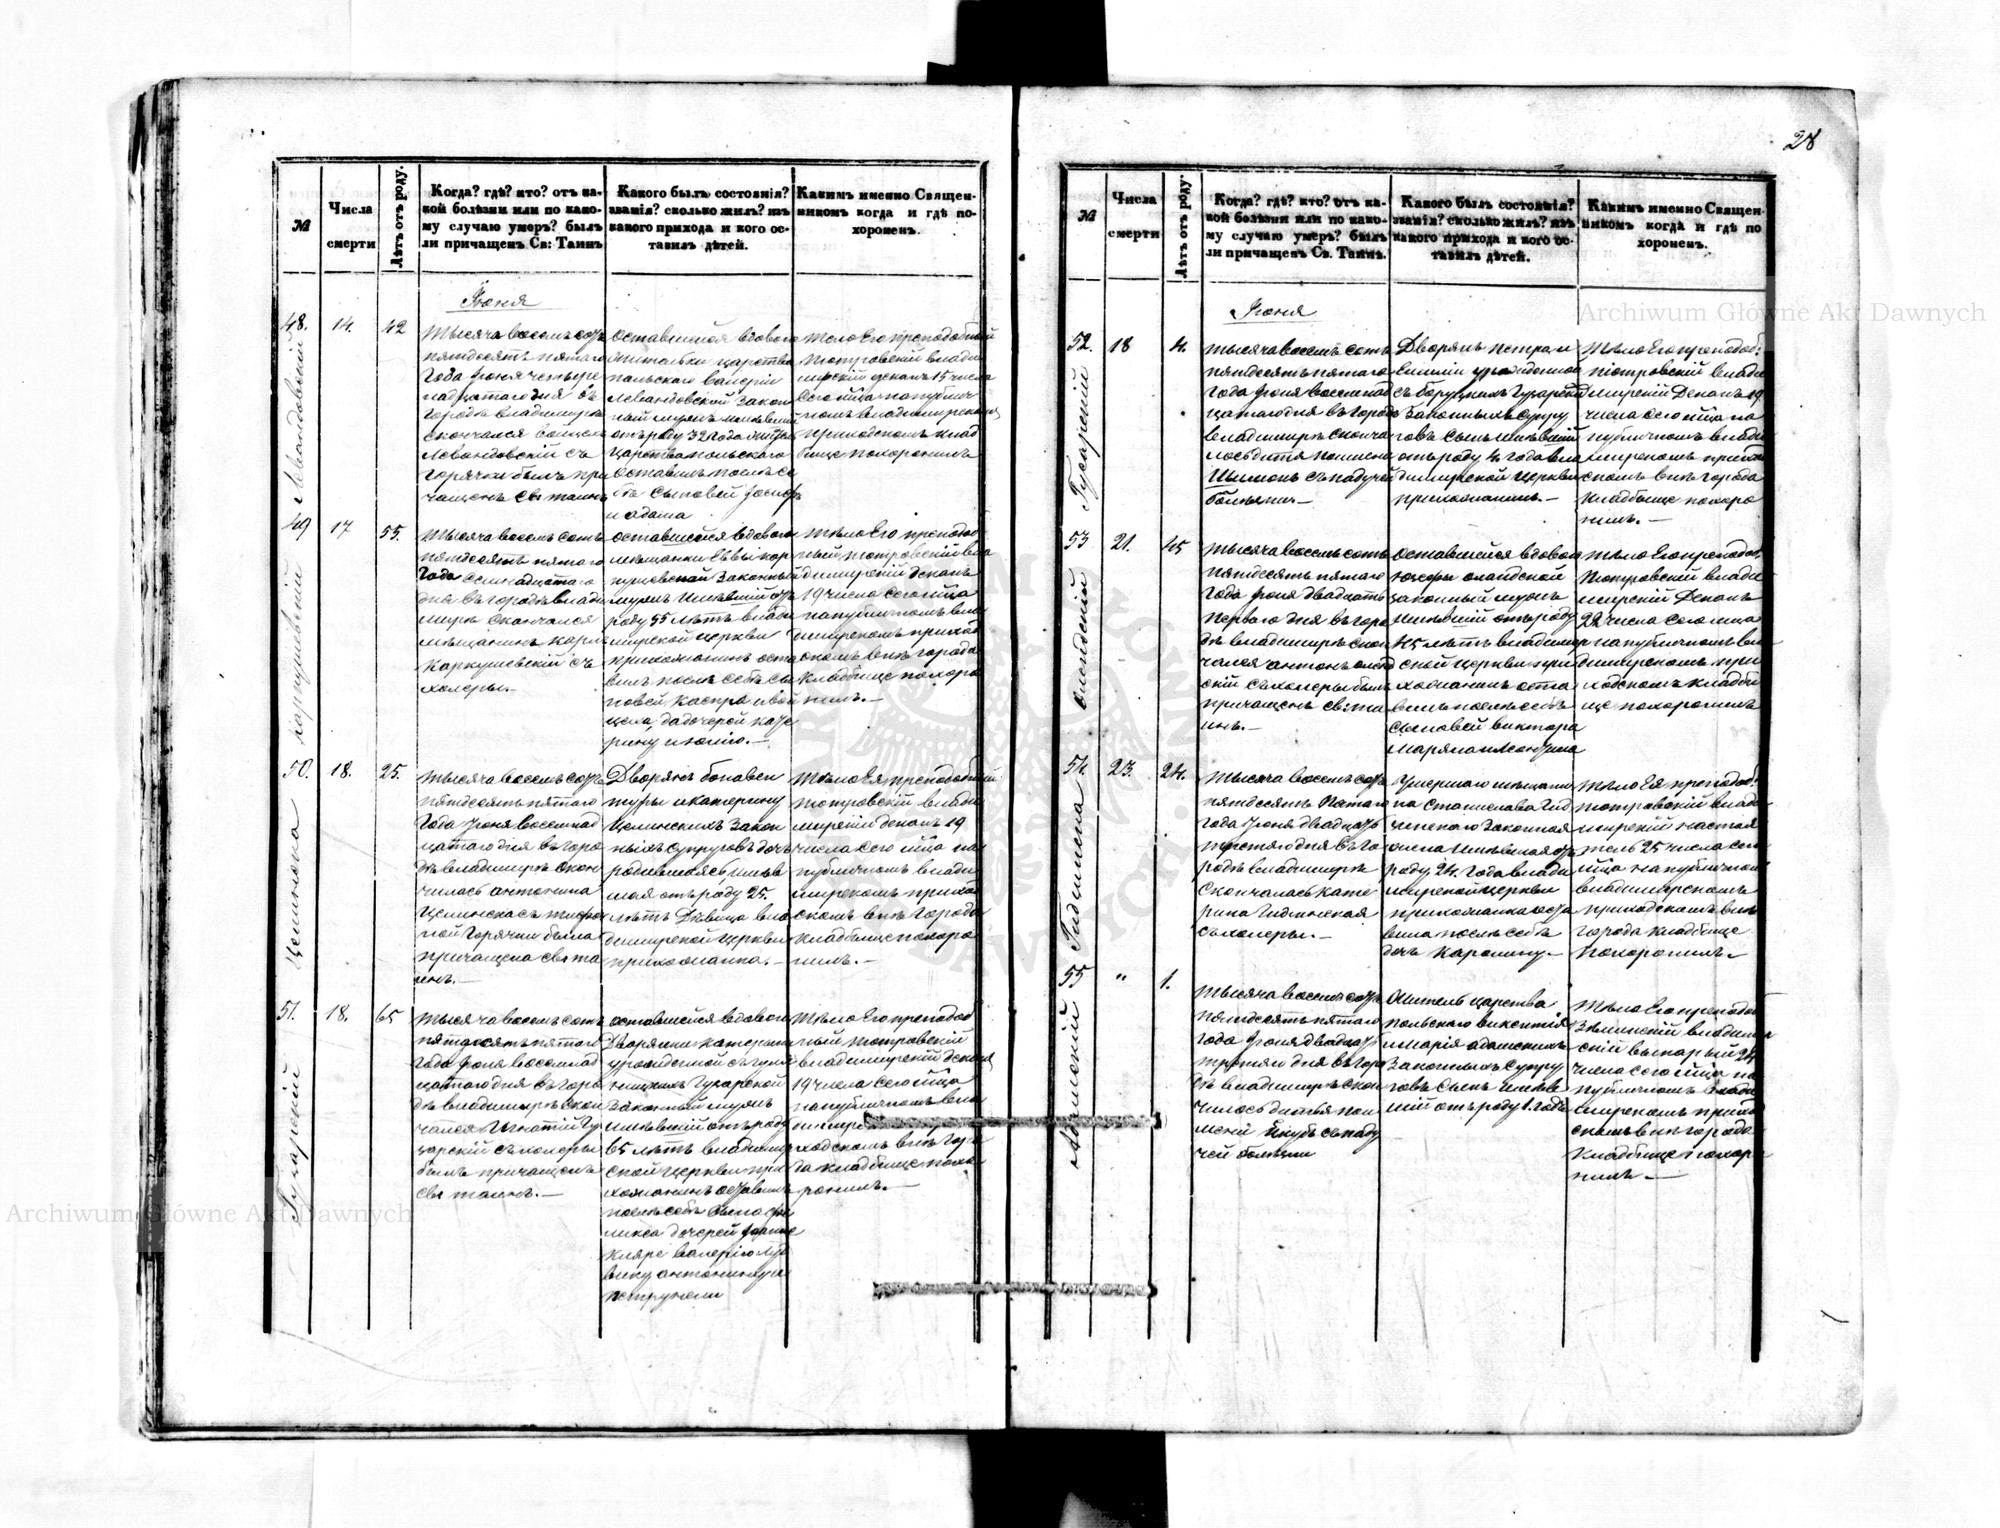 28
№
Числа
смерти
Лѣтъ отъ роду.
Когда? гдѣ? кто? отъ ка-
кой болѣзни или по како-
му случаю умеръ? былъ
ли причащенъ Св: Таинъ
Какого былъ состоянія?
званія? сколько жилъ? изъ
какого прихода и кого ос-
тавилъ дѣтей.
Какимъ именно Священ-
никомъ когда и гдѣ по-
хороненъ.
Іюня
48.
14.
42
Левандовскій
Тысяча восемь сотъ
пятдесятъ пятаго
Года Іюня четыре
надцатаго дня въ
Городѣ Владимирѣ
скончался
Левандовскій съ
Горячки былъ при
чащенъ Свы таинъ
царства
польскаго Валеріи
Левандовской Закон
ный мужъ имѣвший
отъ роду 32 года
Царства польскаго
Оставилъ послѣ се
бя сыновей Іосифа
и адама
Тело Его преподобный
Піотровскій Влади
мирскій деканъ 15 числа
сего мца на публич
номъ Владимирскомъ
приходскомъ клад
бище похоронилъ
49
17
55.
Каркушевскій
Тысяча восемь сотъ
пятдесятъ пятаго
Года семнадцатаго
дня въ городѣ Влади
мирѣ скончался
мѣщанинъ карлъ
Каркушевскій съ
холеры.
оставшейся вдовой
мѣщанки Евы кар
кушевской Законный
мужъ имѣвшій отъ
роду 55 лѣтъ влади
мирской церкви
прихожанинъ оста
вилъ послѣ себя сы
новей каспра и вой
цеха, да дочерей кате
рину и юлію.—
Тѣло Его преподоб
ный піотровскій вла
димирскій деканъ
19 числа сего мца
на публичномъ вла
димирскомъ приход
скомъ внѣ города
Кладбище похоро
нилъ.—
50.
18.
25.
Целинскона
Тысяча восемь сотъ
пятдесятъ пятаго
Года Іюня восемнад
цатаго дня въ горо
дѣ владимирѣ скон
чилась антонина
Целинская съ тифоз
ной Горячки была
причащена Свы та
инъ.—
Дворянъ бонавен
туры и катерины
Целинскихъ Закон
ныхъ супруговъ дочь
родившаясь имѣв
шая отъ роду 25.
лѣтъ Дѣвица вла
димирской Церкви
прихожанка.—
Тѣло Ея преподобный
піотровскій влади
мирскій деканъ 19
числа сего мца на
публичномъ влади
мирскомъ приход
скомъ внѣ города
кладбище похоро
нилъ.—
51.
18.
65
Тысяча восемь сотъ
пятдесятъ пятаго
Года Іюня восемнад
цатаго дня въ горо
дѣ владимирѣ скон
чался Игнатій Гу
царскій съ холеры
былъ причащенъ
Свы таинъ.—
оставшейся вдовой
Дворянки катерины
урожденной съ
Законный мужъ
имѣвшій отъ роду
65 лѣтъ владимир
ской церкви при
хожанинъ оставилъ
послѣ себя сына фе
ликса дочерей
Валерію
антонину и
петрунели
Тѣло Его преподоб
ный піотровскій
владимирскій деканъ
19 числа сего мца
на публичномъ вла
димир
ходскомъ внѣ горо
да кладбище похо
ронилъ.—
№
Числа
смерти
Лѣтъ отъ роду.
Когда? гдѣ? кто? отъ ка-
кой болѣзни или по како-
му случаю умеръ? былъ
ли причащенъ Св. Таинъ.
Какого былъ состоянія?
званія? сколько жилъ? изъ
какого прихода и кого ос-
тавилъ дѣтей.
Какимъ именно Священ-
никомъ когда и гдѣ по
хороненъ.
Іюня
52.
18
4.
Тысяча восемь сотъ
пятдесятъ пятаго
Года Іюня восемнад
цатаго дня въ городѣ
владимирѣ сконча
лось дитя поимени
Шимонъ съ падучей
болезни.—
Дворянъ петра и
Емиліи урожденной
съ
Законныхъ супру
говъ сынъ имѣвшій
отъ роду 4 года вла
димирской Церкви
прихожанинъ.—
Тѣло Его преподоб:
піотровскій влади
мирскій Деканъ 19
числа сего мца на
публичномъ влади
мирскомъ приход
скомъ внѣ города
Кладбище похоро
нилъ.—
53
21.
45
Олендскій
Тысяча восемь сотъ
пятдесятъ пятаго
Года Іюня двадцать
перваго дня въ горо
дѣ владимирѣ скон
чался антонъ оленд
скій съ холеры былъ
причащенъ Свы та
инъ.—
оставшейся вдовой
юзефы олендской
законный мужъ
имѣвшій отъ роду
45 лѣтъ владимир
ской Церкви при
хожанинъ оста
вилъ послѣ себя
сыновей виктора
Маряна и Леонтина
Тѣло Его преподоб.
Піотровскій влади
мирскій Деканъ
22 числа сего мца
на публичномъ вла
димирскомъ при
ходскомъ кладби
ще похоронилъ
54
23.
24.
Гидзинскна
Тысяча восемь сотъ
пятдесятъ Пятаго
Года Іюня двадцать
третяго дня въ го
родѣ владимирѣ
Скончалась кате
рина Гидзинская
съ холеры.—
Умершаго мѣщани
на Станислава Гид
зинскаго Законная
жена имѣвшая отъ
роду 24 Года влади
мирской церкви
прихожанка оста
вила послѣ себя
дочь Каролину—
Тѣло Ея преподоб:
піотровскій влади
мирскій настоя
тель 25 числа сего
мца на публичномъ
владимирскомъ
приходскомъ внѣ
города кладбище
Похоронилъ—
55
"
1.
Адамскій
Тысяча восемь сотъ
пятдесятъ пятаго
года Іюня двадцать
третяго дня въ горо
дѣ владимирѣ скон
чилось дитья пои
мени Якубъ съ паду
чей болѣзни
Житель царства
польскаго викентія
и Марія адамскихъ
Законныхъ супру
говъ сынъ имѣв
шій отъ роду 1. годъ
Тѣло Его преподоб
Зѣлинскій владимир
скій викарый 24
числа сего мца на
публичномъ влади
мирскомъ приход
скомъ внѣ города
Кладбище похоро
нилъ—
Archiwum Główne Akt Dawnych
Archiwum Główne Akt Dawnych